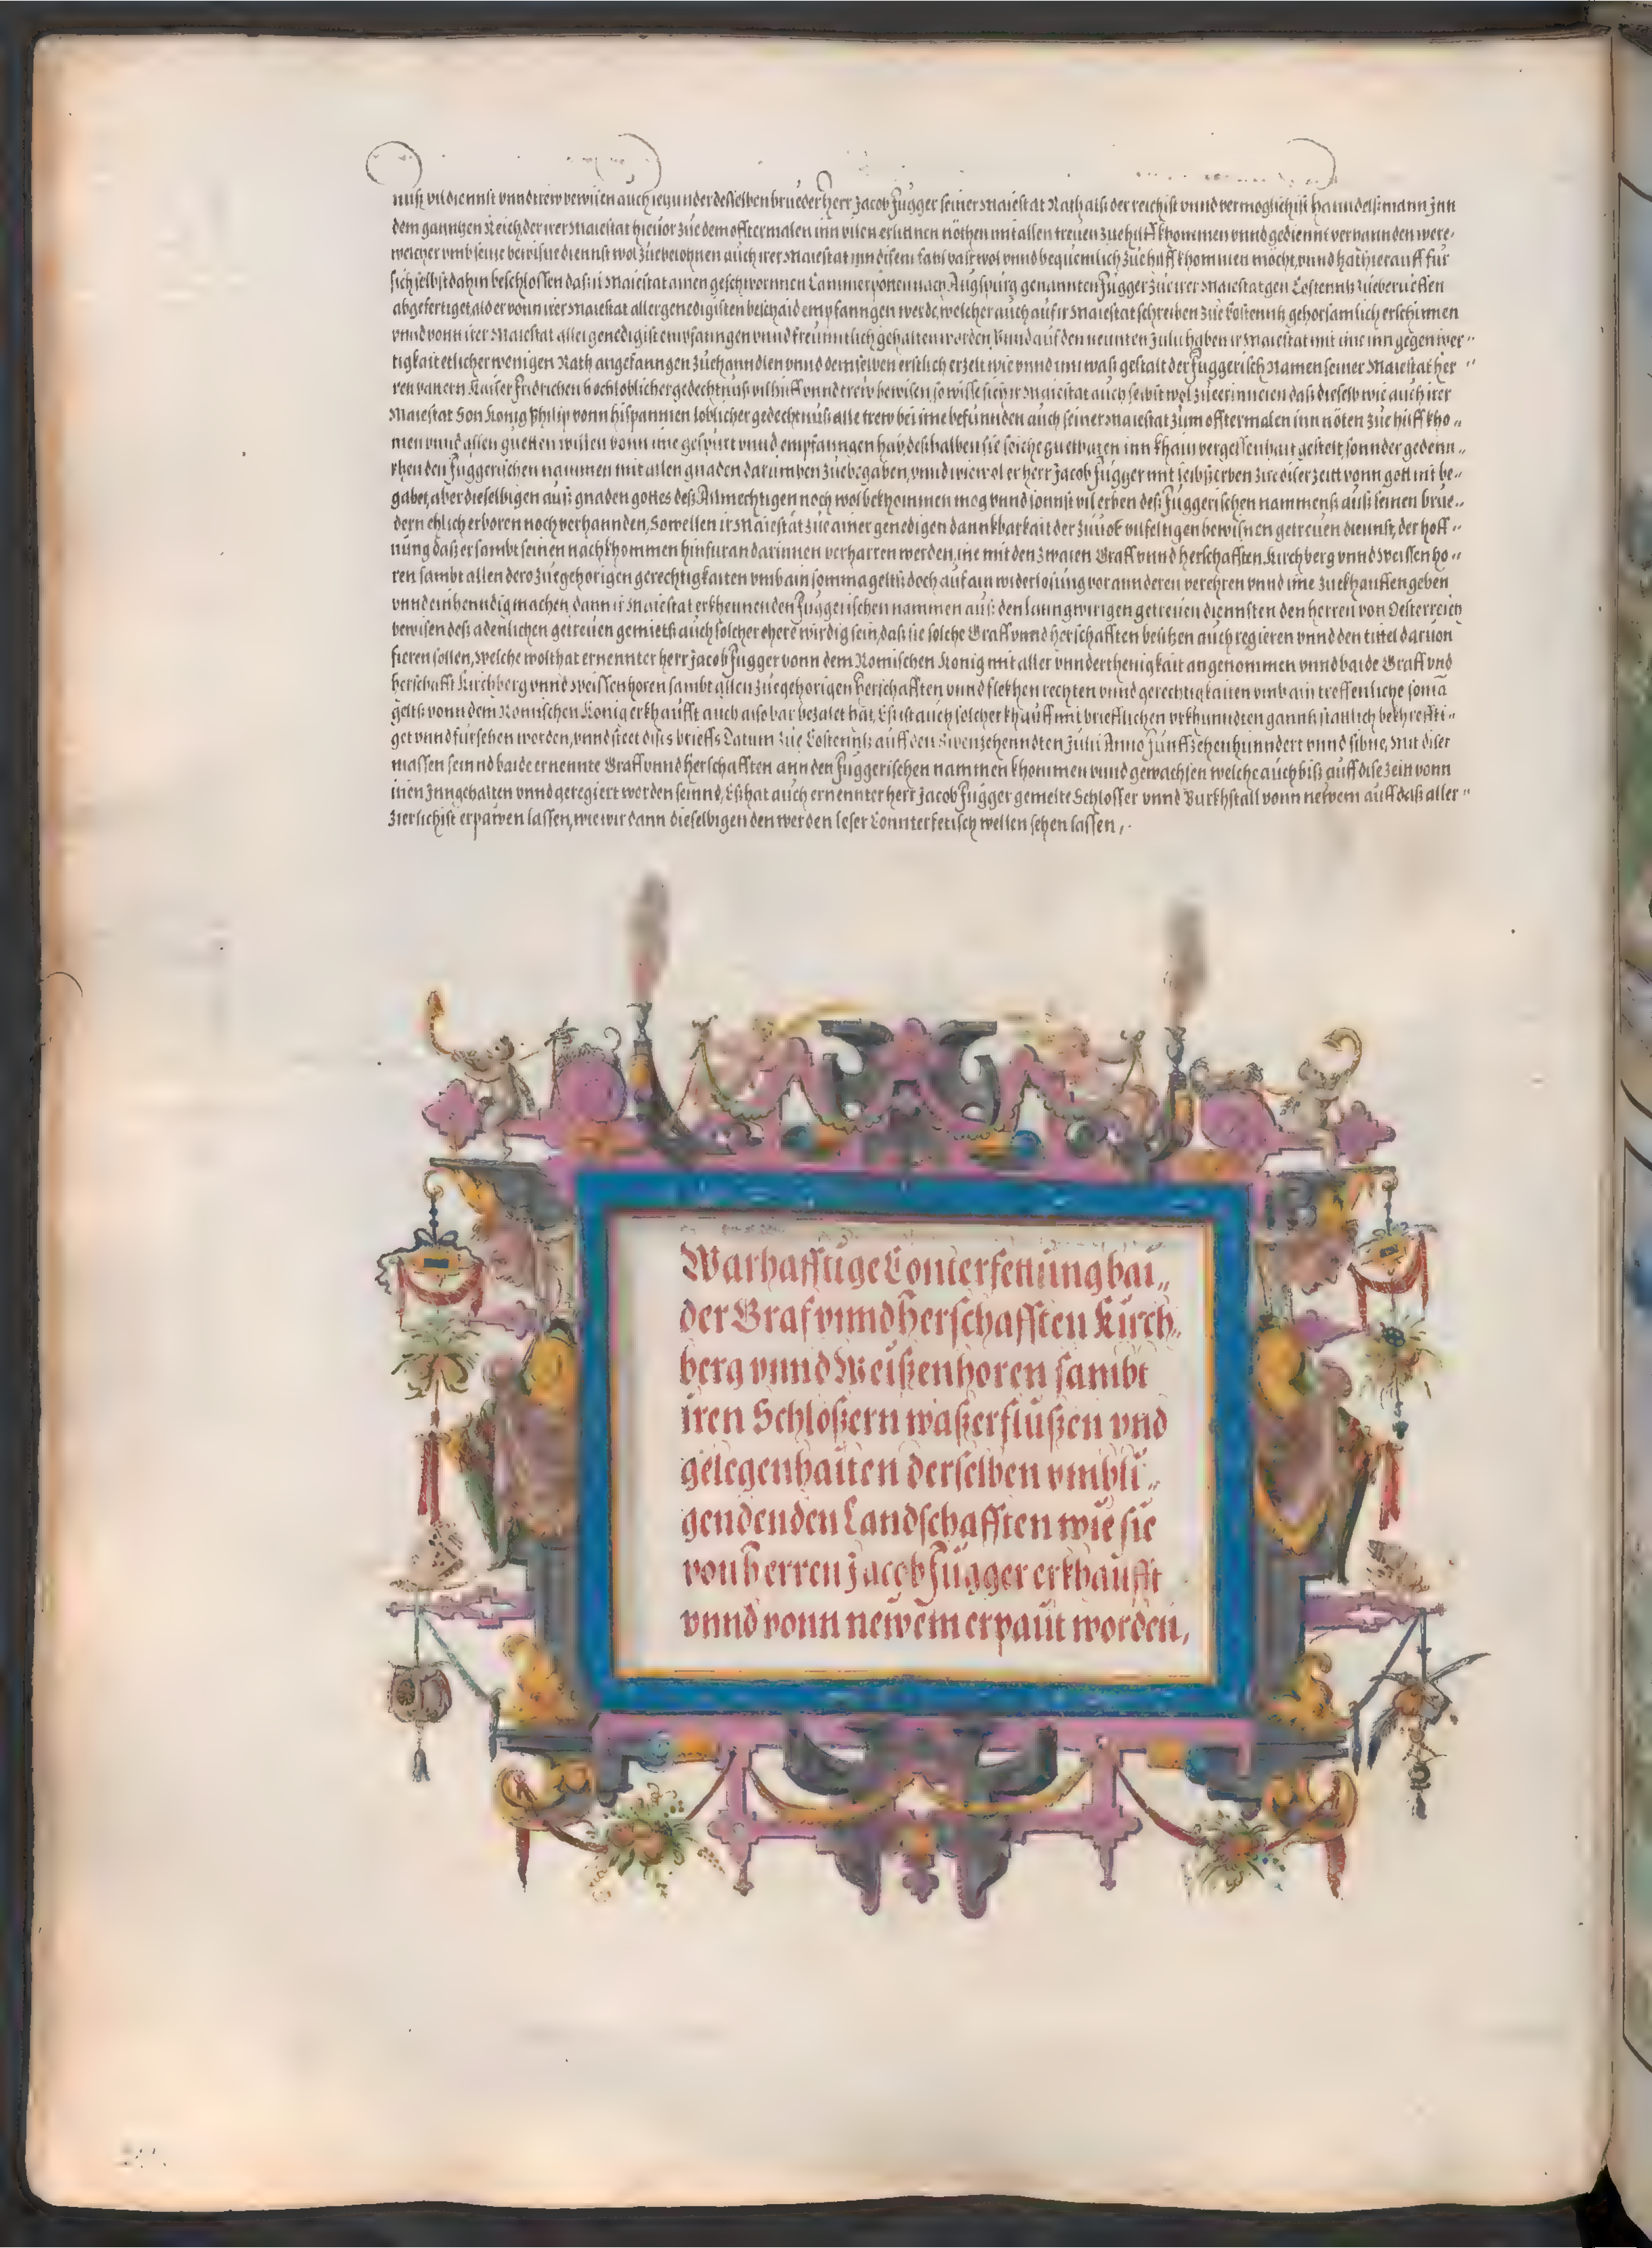 nuß vil dienst vnnd trew bewisen auch ieziunder desselben brueder Herr Jacob Fugger seiner Maiestat Rath alß der reichist vnnd vermoglichist hanndelßmann Inn
dem ganntzen Reich, der irer Maiestat hieuor zue dem offtermalen inn vilen erlittnen nöthen mit allen treuen zue hilff khommen vnnd gediennt verhannden were,
welcher vmb seine bewisne diennst wol zue belohnen auch irer Maiestat inn disem fahl vast wol vnnd bequemlich zue hilff khommen mocht, vnnd hat hierauff für
sich selbst dahin beschlossen das ir Maiestat ainen geschwornnen Cammerpotten nach Augspurg genannten Fugger zue irer Maiestat gen Costenntz zueberueffen
abgefertiget, als er vonn irer Maiestat allergenedigisten beschaid empfanngen werde, welcher auch auf ir Maiestat schreiben zue Kostenntz gehorsamlich erschinnen
vnnd vonn irer Maiestat aller genedigist empfanngen vnnd freunntlich gehalten worden, Vnnd auf den neunten Julii haben ir Maiestat mit ime inn gegenwer„
tigkait etlicher wenigen Rath angefanngen zuehanndlen vnnd demselben erstlich erzelt wie vnnd inn waß gestalt der Fuggerisch Namen seiner Maiestat her„
ren vattern Kaiser Fridrichen hochloblicher gedechtnuß vil hilff vnnd trew bewisen, so wisse sich ir Maiestat auch selbst wol zueerinneren daß dieselb wie auch irer
Maiestat Son Konig Philip vonn Hispannien loblicher gedechtnuß alle trew bei ime befunnden auch seiner Maiestat zum offtermalen inn nöten zue hilff kho„
men vnnd allen guetten willen vonn ime gespurt vnnd empfanngen hab, deßhalben sie solche guethaten inn khain vergessenhait gestelt sonnder gedenn„
khen den Fuggerischen nammen mit allen gnaden darumben zuebegaben, vnnd wiewol er herr Jacob Fugger mit leibßerben zue diser zeitt vonn gott nit be„
gabet, aber dieselbigen auß gnaden gottes deß Allmechtigen noch wol bekhommen mog vnnd sonnst vil erben deß Fuggerischen nammenß auß seinen brue„
dern ehlich erboren noch verhannden, So wellen ir Maiestat zue ainer genedigen dannkbarkait der zuuor vilfeltigen bewisnen getreuen diennst, der hoff„
nung daß er sambt seinen nachkhommen hinfuran darinnen verharren werden, ime mit den zwaien Graff vnnd herschafften Kirchberg vnnd Weissenho„
ren sambt allen dero zuegehorigen gerechtigkaiten vmb ain somma geltß doch auf ain widerlosung vor anderen verehren vnnd ime zuekhauffen geben
vnnd einhenndig machen, dann ir Maiestat erkhennen den Fuggerischen nammen auß den lanngwirigen getreuen diennsten den herren von Oesterreich
bewisen deß adenlichen getreuen gemietß auch solcher ehere wirdig sein, daß sie solche Graff vnnd herschafften besitzen auch regieren vnnd den tittel daruon
fieren sollen, Welche wolthat ernennter herr Jacob Fugger vonn dem Romischen Konig mit aller vnnderthenigkait angenommen vnnd baide Graff vnd
herschafft Kirchberg vnnd Weissenhoren sambt allen zuegehorigen herschafften vnnd flekhen rechten vnnd gerechtigkaiten vmb ain treffenliche soma
geltß vonn dem Romischen Konig erkhaufft auch also bar bezalet hat, Es ist auch solcher khauff mit brieflichen vrkhunndten ganntz stattlich bekhreffti„
get vnnd fursehen worden, vnnd steet dises brieffs Datum zue Costenntz auff den sibenzehenndten Julii Anno Funffzehenhunndert vnnd sibne, Mit diser
massen seinnd baide ernennte Graff vnnd herschafften ann den Fuggerischen nammen khommen vnnd gewachsen welche auch biß auff dise zeit vonn
inen Inngehalten vnnd geregiert worden seinnd, Eß hat auch ernennter herr Jacob Fugger gemelte Schlosser vnnd Burkhstall vonn newem auff daß aller„
zierlichist erpawen lassen, wie wir dann dieselbigen den werden leser Connterfetisch wellen sehen lassen,
Warhafftige Conterfettung bai„
der Graf vnnd Herschafften Kirch„
berg vnnd Weißenhoren sambt
iren Schloßern waßerflußen vnd
gelegenhaiten derselben vmbli„
gendenden Landschafften wie sie
von Herren Jacob Fugger erkhaufft
vnnd vonn newem erpaut worden,